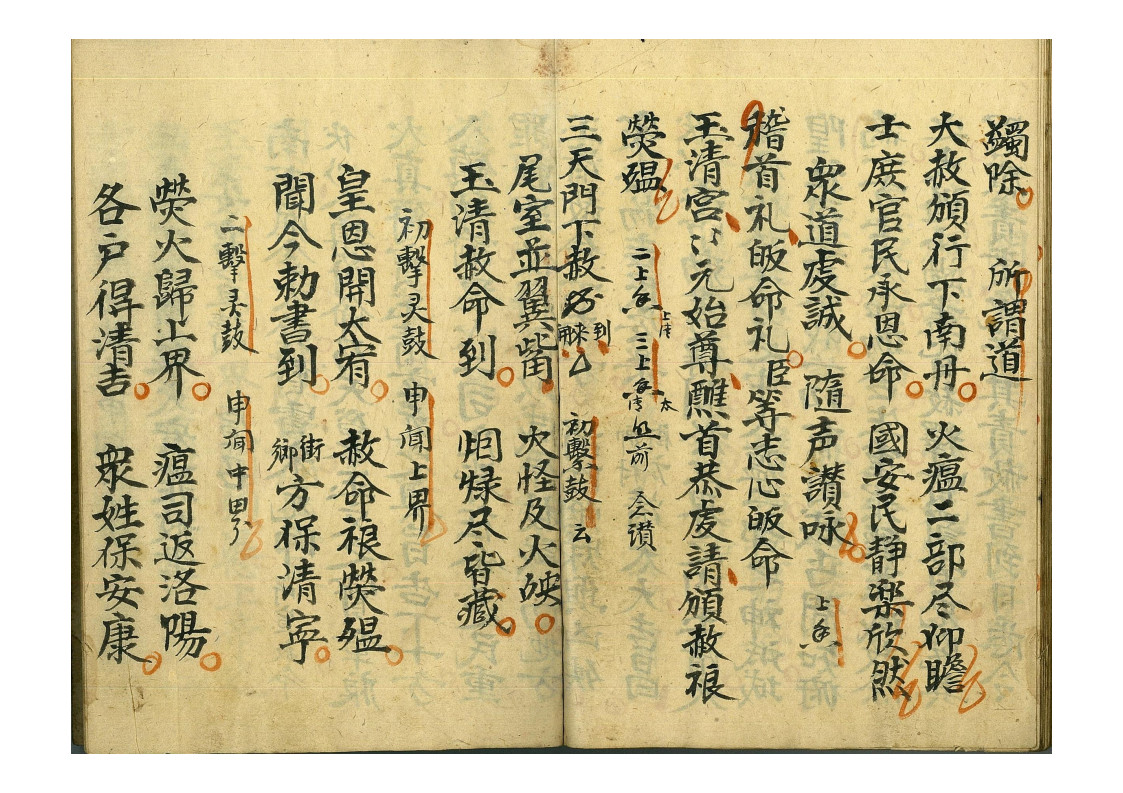 蠲除 所謂道
大赦頒行下南丹 火瘟二部尽仰瞻
士庶官民承恩命 國安民静樂欣然
衆道虔誠 隨声讃咏 上香
稽首礼皈命礼 臣等志心皈命
玉清宮〻元始尊 醮首恭虔請頒赦禳
熒瘟 二上香 三上香 云前 会讃
三天門下赦 到来 初擊鼓 云
尾室並翼觜 火怪及火殃
玉清赦命到 烟燎尽皆藏
初擊灵鼓 申闻上界
皇恩開大宥 赦命禳熒瘟
聞今勅書到 街鄉方保清寧
二擊灵鼓 申闻中界
熒火歸上界 瘟司返洛陽
各戸得清吉 衆姓保安康